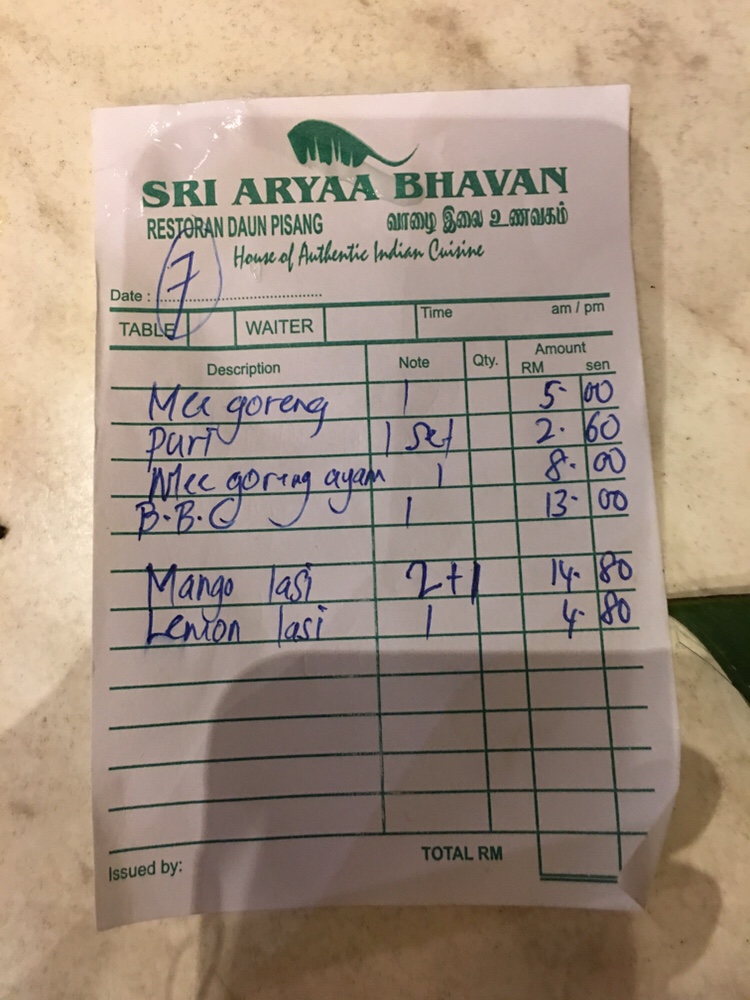 SRI ARYAA BHAVAN
RESTORAN DAUN PISANG வாழை இலை உணவகம்
House of Authentic Indian Cuisine
7
Date : ........................................
TABLE WAITER Time am / pm
Description Note Qty. Amount
RM sen
Mee goreng 1 5. 00
Puri 1 Set 2. 60
Mee goreng ayam 1 8. 00
B.B.C 1 13. 00
Mango lasi 2+1 14. 80
Lemon lasi 1 4. 80
Issued by: TOTAL RM